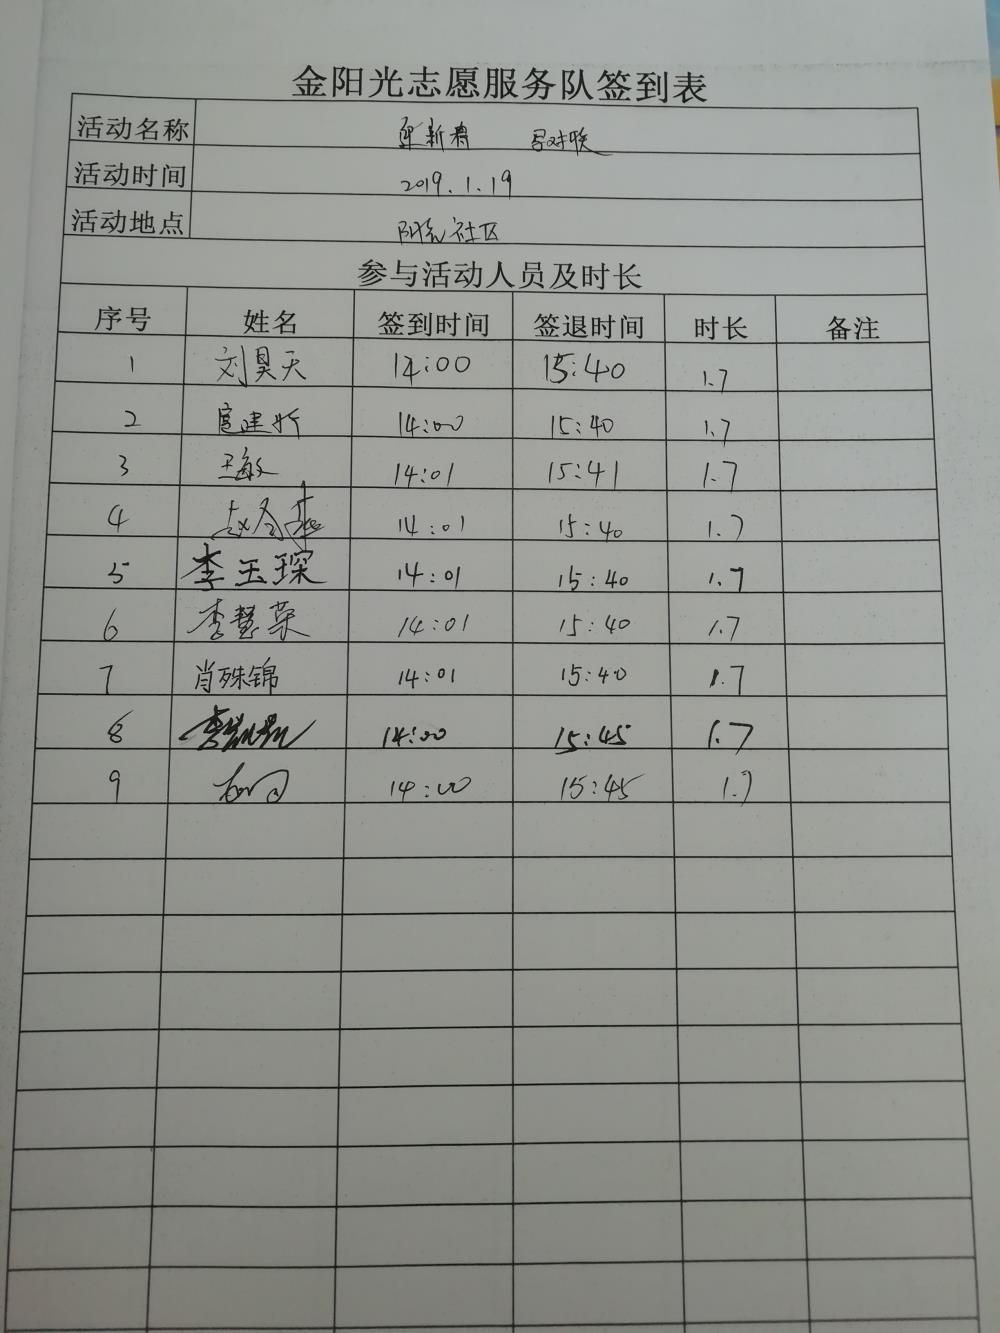 金阳光志愿服务队签到表
活动名称 迎新春 写对联
活动时间 2019.1.19
活动地点 阳光社区
参与活动人员及时长
序号 姓名 签到时间 签退时间 时长 备注
1 刘昊天 14:00 15:40 1.7
2 建新 14:00 15:40 1.7
3 王敏 14:01 15:41 1.7
4 赵冬燕 14:01 15:40 1.7
5 李玉琛 14:01 15:40 1.7
6 李慧荣 14:01 15:40 1.7
7 肖殊锦 14:01 15:40 1.7
8 李 14:00 15:45 1.7
9 14:00 15:45 1.7